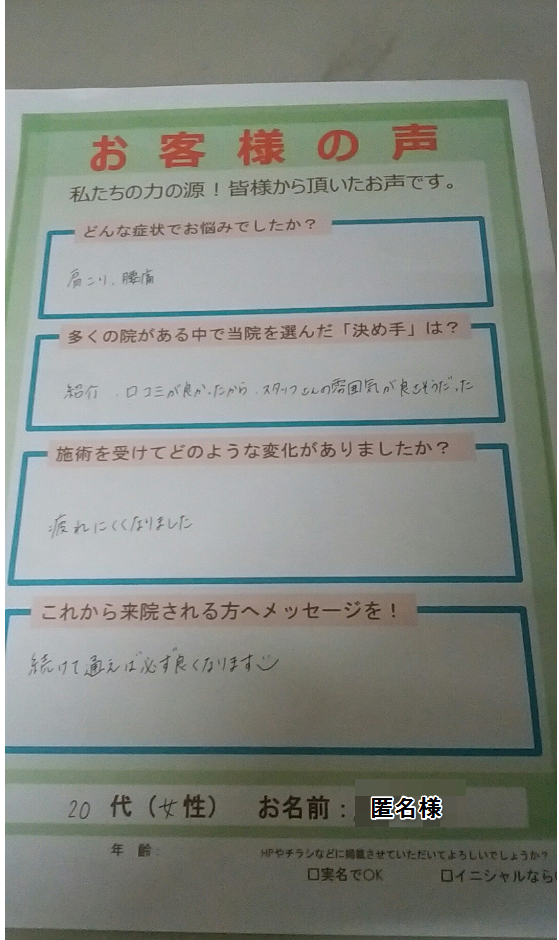 お客様の声
私たちの力の源！皆様から頂いたお声です。
どんな症状でお悩みでしたか？
肩こり、腰痛
多くの院がある中で当院を選んだ「決め手」は？
紹介、口コミが良かったから、スタッフさんの雰囲気が良さそうだった
施術を受けてどのような変化がありましたか？
疲れにくくなりました
これから来院される方へメッセージを！
続けて通えば必ず良くなります
20代（女性） お名前：匿名様
年齢：
HPやチラシなどに掲載させていただいてよろしいでしょうか？
□実名でOK □イニシャルなら